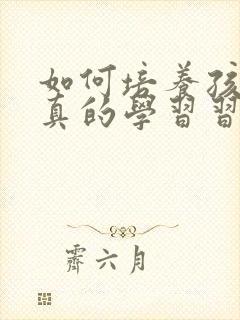 如何培养孩
真的學習習
霽六月